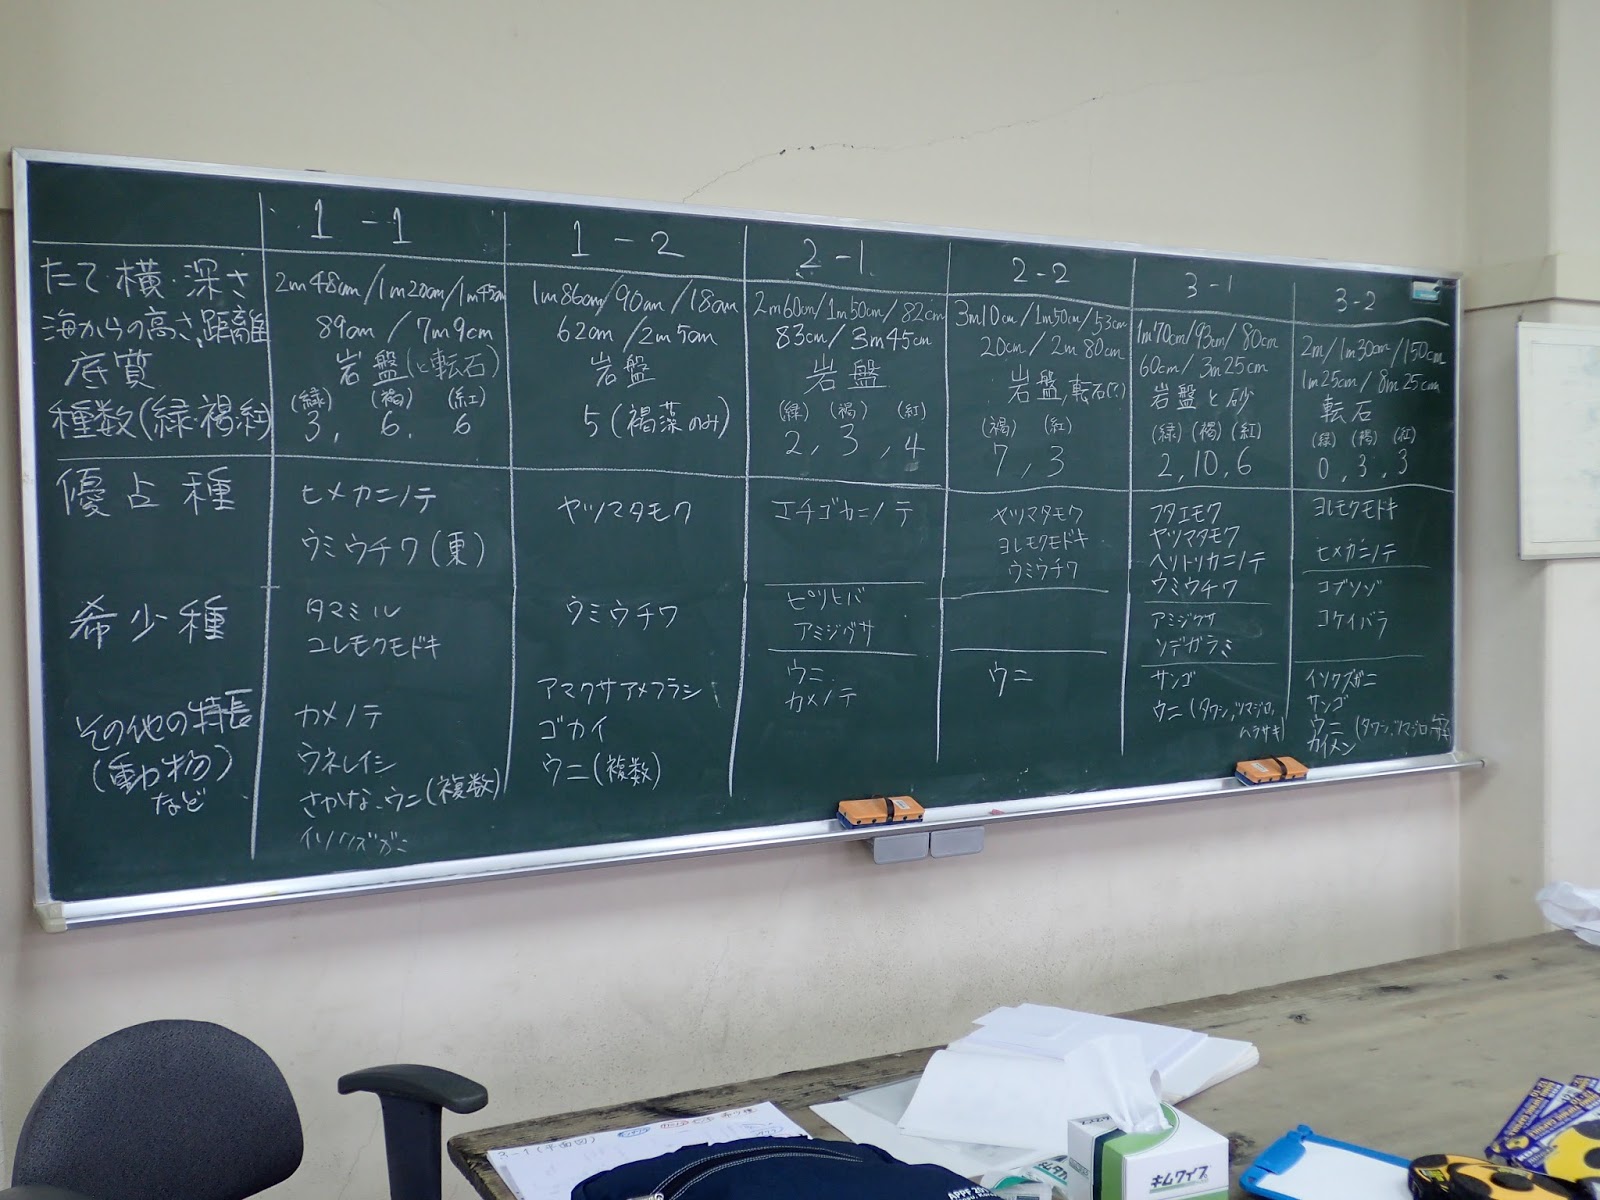 1-1
1-2
2-1
2-2
3-1
3-2
たて・横・深さ
海からの高さ、距離
底質
種数(緑・褐・紅)
優占種
希少種
その他の特長
(動物)
など
2m48cm/1m20cm/1m45cm
89cm/7m9cm
岩盤(と転石)
(緑) (褐) (紅)
3, 6, 6
ヒメカニノテ
ウミウチワ(裏)
タマミル
ユレモクモドキ
カメノテ
ウネレイシ
さかな、ウニ(複数)
イソクズガニ
1m86cm/90cm/18cm
62cm/2m5cm
岩盤
5(褐藻のみ)
ヤツマタモク
ウミウチワ
アマクサアメフラシ
ゴカイ
ウニ(複数)
2m60cm/1m50cm/82cm
83cm/3m45cm
岩盤
(緑) (褐) (紅)
2, 3, 4
エチゴカニノテ
ピリヒバ
アミジグサ
ウニ
カメノテ
3m10cm/1m50cm/53cm
20cm/2m80cm
岩盤,転石(?)
(褐) (紅)
7, 3
ヤツマタモク
ヨレモクモドキ
ウミウチワ
ウニ
1m70cm/93cm/80cm
60cm/3m25cm
岩盤と砂
(緑)(褐)(紅)
2, 10, 6
フタエモク
ヤツマタモク
ヘリトリカニノテ
ウミウチワ
アミジグサ
ソデガラミ
サンゴ
ウニ(タワシ,ツマジロ,
ムラサキ)
2m/1m30cm/150cm
1m25cm/8m25cm
転石
(緑)(褐)(紅)
0, 3, 3
ヨレモクモドキ
ヒメカニノテ
コブソゾ
コケイバラ
イソクズガニ
サンゴ
ウニ(タワシ,ツマジロ,
カイメン
3-1(平面図)
キムワイプ